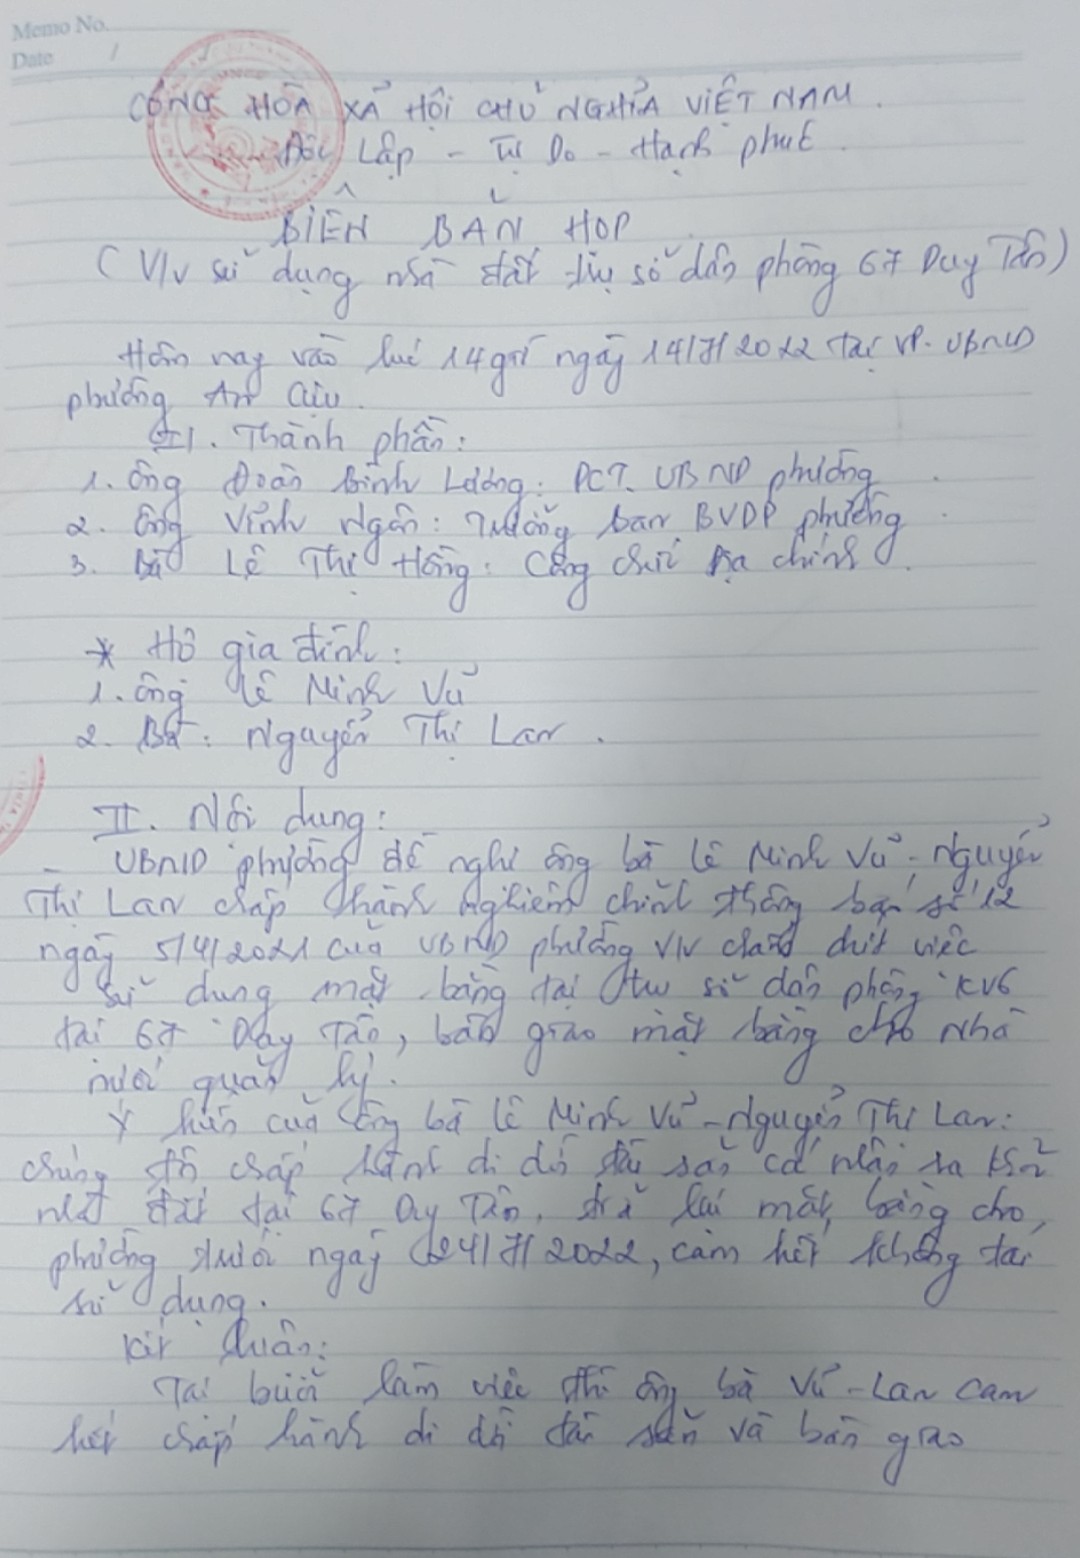 Memo No.
Date /
CỘNG HÒA XÃ HỘI CHỦ NGHĨA VIỆT NAM.
Độc Lập - Tự Do - Hạnh phúc.
BIÊN BẢN HỌP
(V/v sử dụng nhà đất trụ sở dân phòng 67 Duy Tân)
Hôm nay vào lúc 14 giờ ngày 14/7/2022 tại VP. UBND
phường An Cựu.
I. Thành phần:
1. Ông Đoàn Bình Lương: PCT. UBND phường
2. Ông Vĩnh Ngân: Trưởng ban BVDP phường
3. Bà Lê Thị Hồng: Công chức Địa chính.
* Hộ gia đình:
1. Ông Lê Minh Vũ
2. Bà: Nguyễn Thị Lan.
II. Nội dung:
UBND phường đề nghị ông bà Lê Minh Vũ - Nguyễn
Thị Lan chấp hành nghiêm chỉnh thông báo số 12
ngày 5/4/2021 của UBND phường V/v chấm dứt việc
sử dụng mặt bằng tại trụ sở dân phòng KV6
tại 67 Duy Tân, bàn giao mặt bằng cho nhà
nước quản lý.
Ý kiến của ông bà Lê Minh Vũ - Nguyễn Thị Lan:
chúng tôi chấp hành di dời tài sản cá nhân ra khỏi
nhà đất tại 67 Duy Tân, trả lại mặt bằng cho
phường trước ngày 24/7/2022, cam kết không tái
sử dụng.
Kết luận:
Tại buổi làm việc thì ông bà Vũ - Lan cam
kết chấp hành di dời tài sản và bàn giao